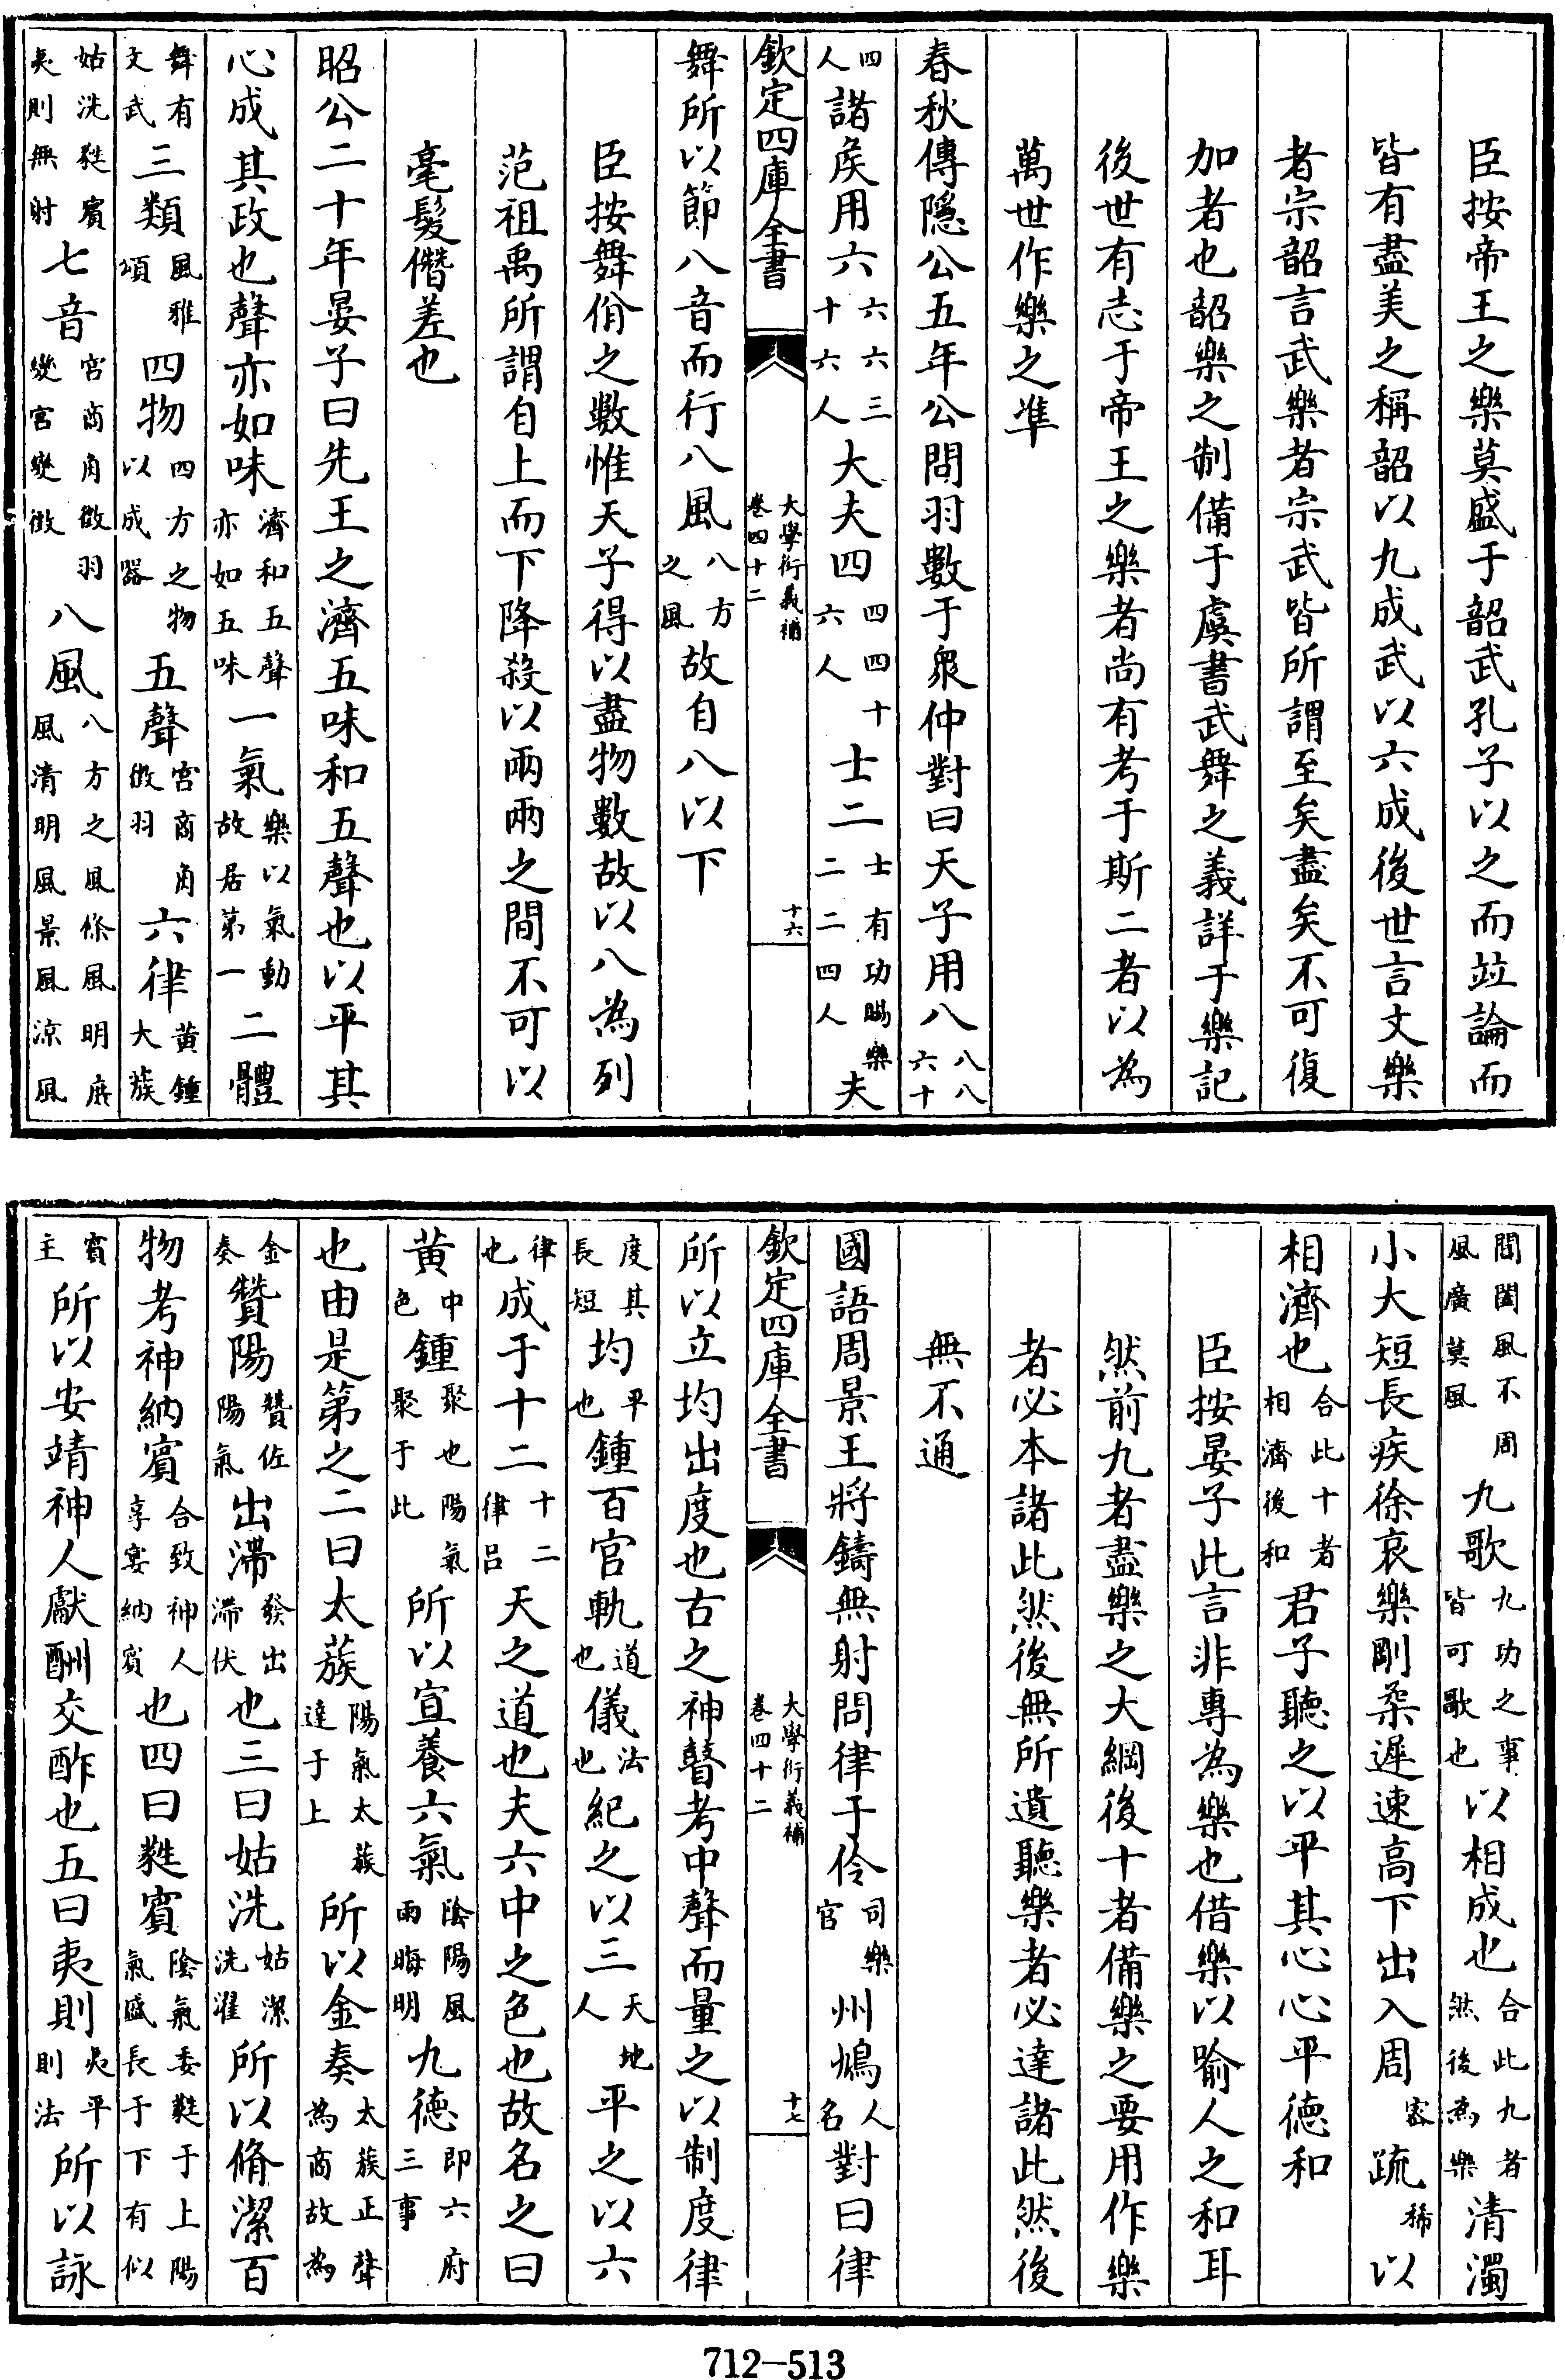 臣按帝王之樂莫盛于韶武孔子以之而竝論而
皆有盡美之稱韶以九成武以六成後世言文樂
者宗韶言武樂者宗武皆所謂至矣盡矣不可復
加者也韶樂之制備于虞書武舞之義詳于樂記
後世有志于帝王之樂者尚有考于斯二者以為
萬世作樂之準
春秋傳隱公五年公問羽數于衆仲對曰天子用八八八六十
四人諸侯用六六六三十六人大夫四四四十六人士二士有功賜樂二二四人夫
欽定四庫全書 大學衍義補 卷四十二 十六
舞所以節八音而行八風八方之風故自八以下
臣按舞佾之數惟天子得以盡物數故以八為列
范祖禹所謂自上而下降殺以兩兩之間不可以
毫髮僭差也
昭公二十年晏子曰先王之濟五味和五聲也以平其
心成其政也聲亦如味濟和五聲亦如五味一氣樂以氣動故居第一二體
舞有文武三類風雅頌四物四方之物以成器五聲宮商角徵羽六律黃鍾大蔟
姑洗蕤賓夷則無射七音宮商角徵羽變宮變徵八風八方之風條風明庶風清明風景風涼風
閶闔風不周風廣莫風九歌九功之事皆可歌也以相成也合此九者然後為樂清濁
小大短長疾徐哀樂剛柔遲速高下出入周密疏稀以
相濟也合此十者相濟後和君子聽之以平其心心平德和
臣按晏子此言非專為樂也借樂以喻人之和耳
然前九者盡樂之大綱後十者備樂之要用作樂
者必本諸此然後無所遺聽樂者必達諸此然後
無不通
國語周景王將鑄無射問律于伶司樂官州鳩人名對曰律
欽定四庫全書 大學衍義補 卷四十二 十七
所以立均出度也古之神瞽考中聲而量之以制度律
度其長短均平也鍾百官軌道也儀法也紀之以三天地人平之以六
律也成于十二十二律呂天之道也夫六中之色也故名之曰
黃中色鍾聚也陽氣聚于此所以宣養六氣陰陽風雨晦明九德即六府三事
也由是第之二曰太蔟陽氣太蔟達于上所以金奏太蔟正聲為商故為
金奏贊陽贊佐陽氣出滯發出滯伏也三曰姑洗姑潔洗濯所以脩潔百
物考神納賓合致神人享宴納賓也四曰蕤賓陰氣委蕤于上陽氣盛長于下有似
賓主所以安靖神人獻酬交酢也五曰夷則夷平則法所以詠
712-513